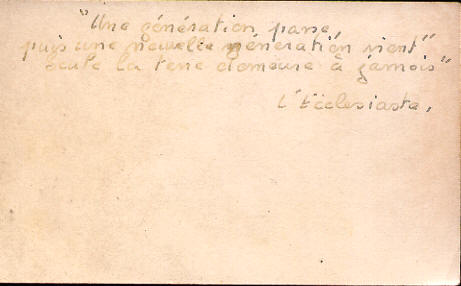 "Une génération passe,
puis une nouvelle génération vient"
seule la terre demeure à jamais"
L'Ecclesiaste,